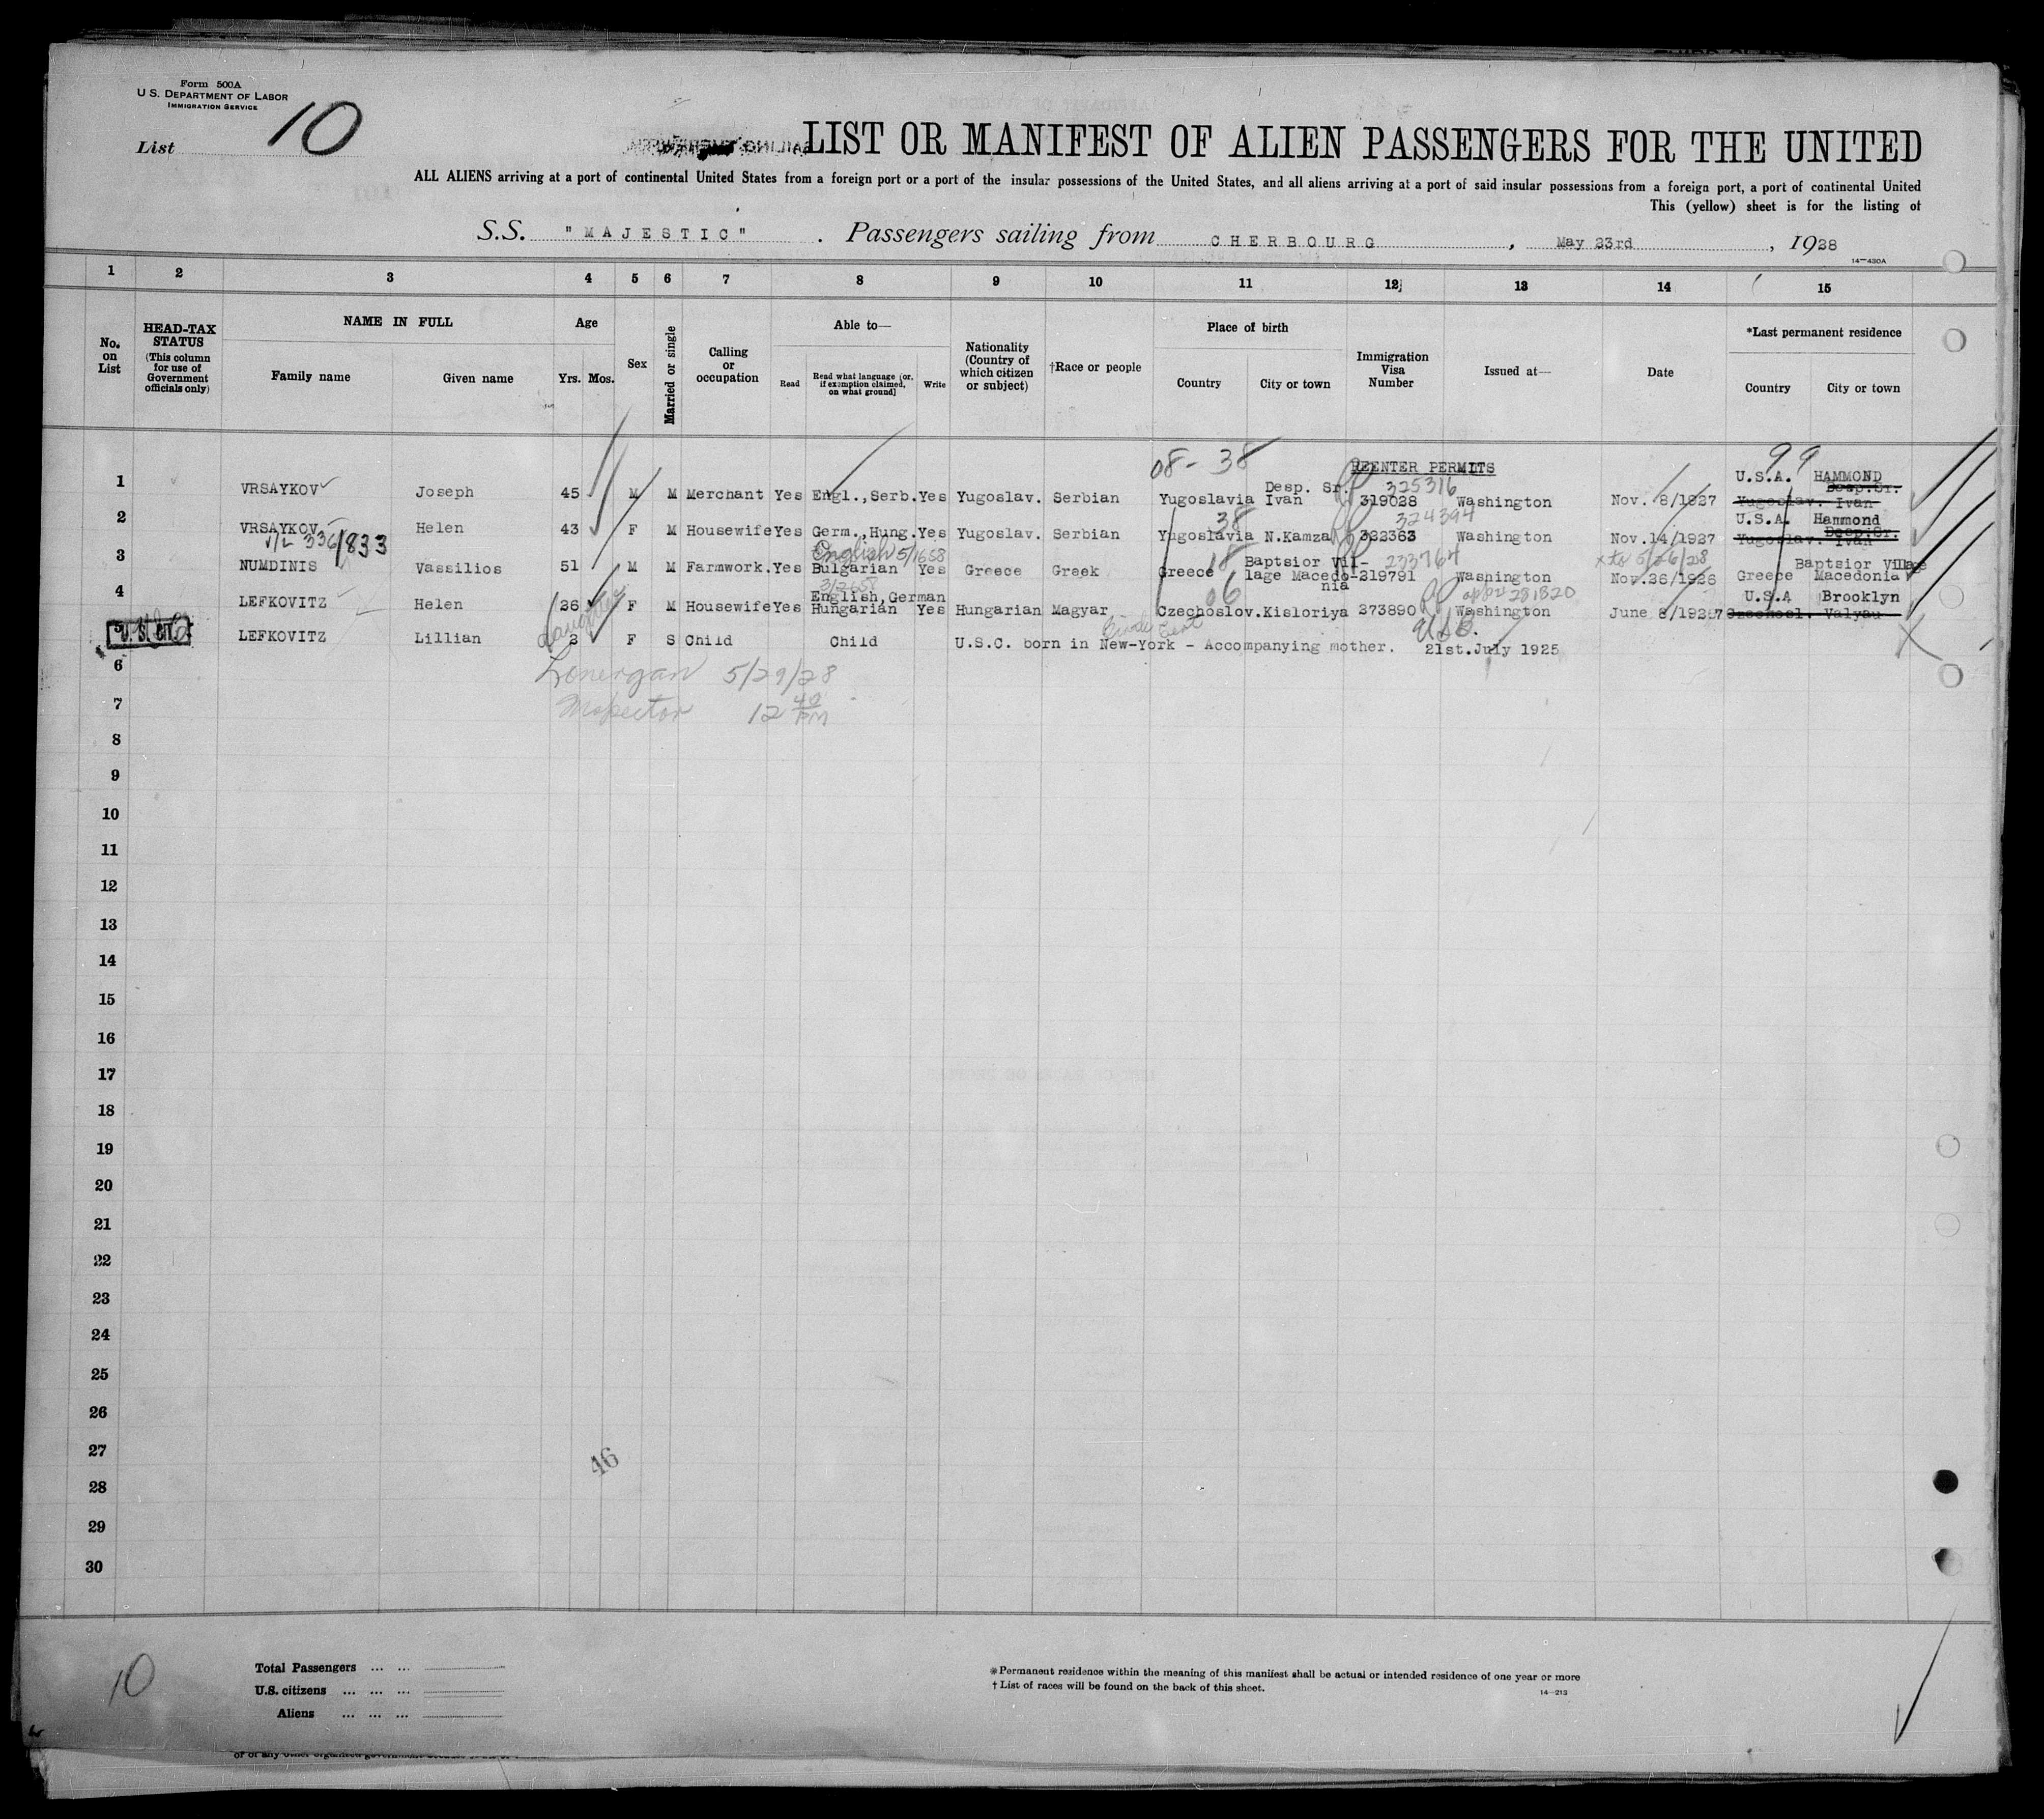 Form 500A
U.S. DEPARTMENT OF LABOR
IMMIGRATION SERVICE
List 10
LIST OR MANIFEST OF ALIEN PASSENGERS FOR THE UNITED
ALL ALIENS arriving at a port of continental United States from a foreign port or a port of the insular possessions of the United States, and all aliens arriving at a port of said insular possessions from a foreign port, a port of continental United
This (yellow) sheet is for the listing of
S.S. "MAJESTIC". Passengers sailing from CHERBOURG, May 23rd, 1928
14-430A
1 2 3 4 5 6 7 8 9 10 11 12 13 14 15
No. on List
HEAD-TAX STATUS (This column for use of Government officials only)
NAME IN FULL
Family name Given name
Age
Yrs. Mos.
Sex
Married or single
Calling or occupation
Able to—
Read Read what language [or, if exemption claimed, on what ground] Write
Nationality (Country of which citizen or subject)
†Race or people
Place of birth
Country City or town
Immigration Visa Number
Issued at—
Date
*Last permanent residence
Country City or town
08-38 REENTER PERMITS 99
325316 U.S.A. HAMMOND
1 VRSAYKOV Joseph 45 M M Merchant Yes Engl.,Serb. Yes Yugoslav. Serbian Yugoslavia Desp. Sr. Ivan 319028 Washington Nov. 8/1927 Yugoslav. Desp.Sr. Ivan
38 324394 U.S.A. Hammond
2 VRSAYKOV Helen 43 F M Housewife Yes Germ.,Hung. Yes Yugoslav. Serbian Yugoslavia N.Kamza 322363 Washington Nov.14/1927 Yugoslav. Desp.Sr. Ivan
V/L 336/833 English 5/1658 18 233764 5/26/28
3 NUMDINIS Vassilios 51 M M Farmwork. Yes Bulgarian Yes Greece Greek Greece Baptsior Village Macedo-nia 219791 Washington Nov.26/1926 Greece Baptsior Village Macedonia
06 281320 U.S.A Brooklyn
4 LEFKOVITZ Helen 26 F M Housewife Yes English,German Hungarian Yes Hungarian Magyar Czechoslov. Kisloriya 273890 Washington June 8/1927 Czechosl. Valyau
daughter
5 U.S. Cit. LEFKOVITZ Lillian 2 F S Child Child U.S.C. born in New-York - Accompanying mother. 21st.July 1925
USB.
Lonergan 5/29/28
Inspector 12 40 PM
6
7
8
9
10
11
12
13
14
15
16
17
18
19
20
21
22
23
24
25
26
27
46
28
29
30
10
Total Passengers ... ...
U.S. citizens ... ... ...
Aliens ... ... ...
*Permanent residence within the meaning of this manifest shall be actual or intended residence of one year or more
† List of races will be found on the back of this sheet.
14-213